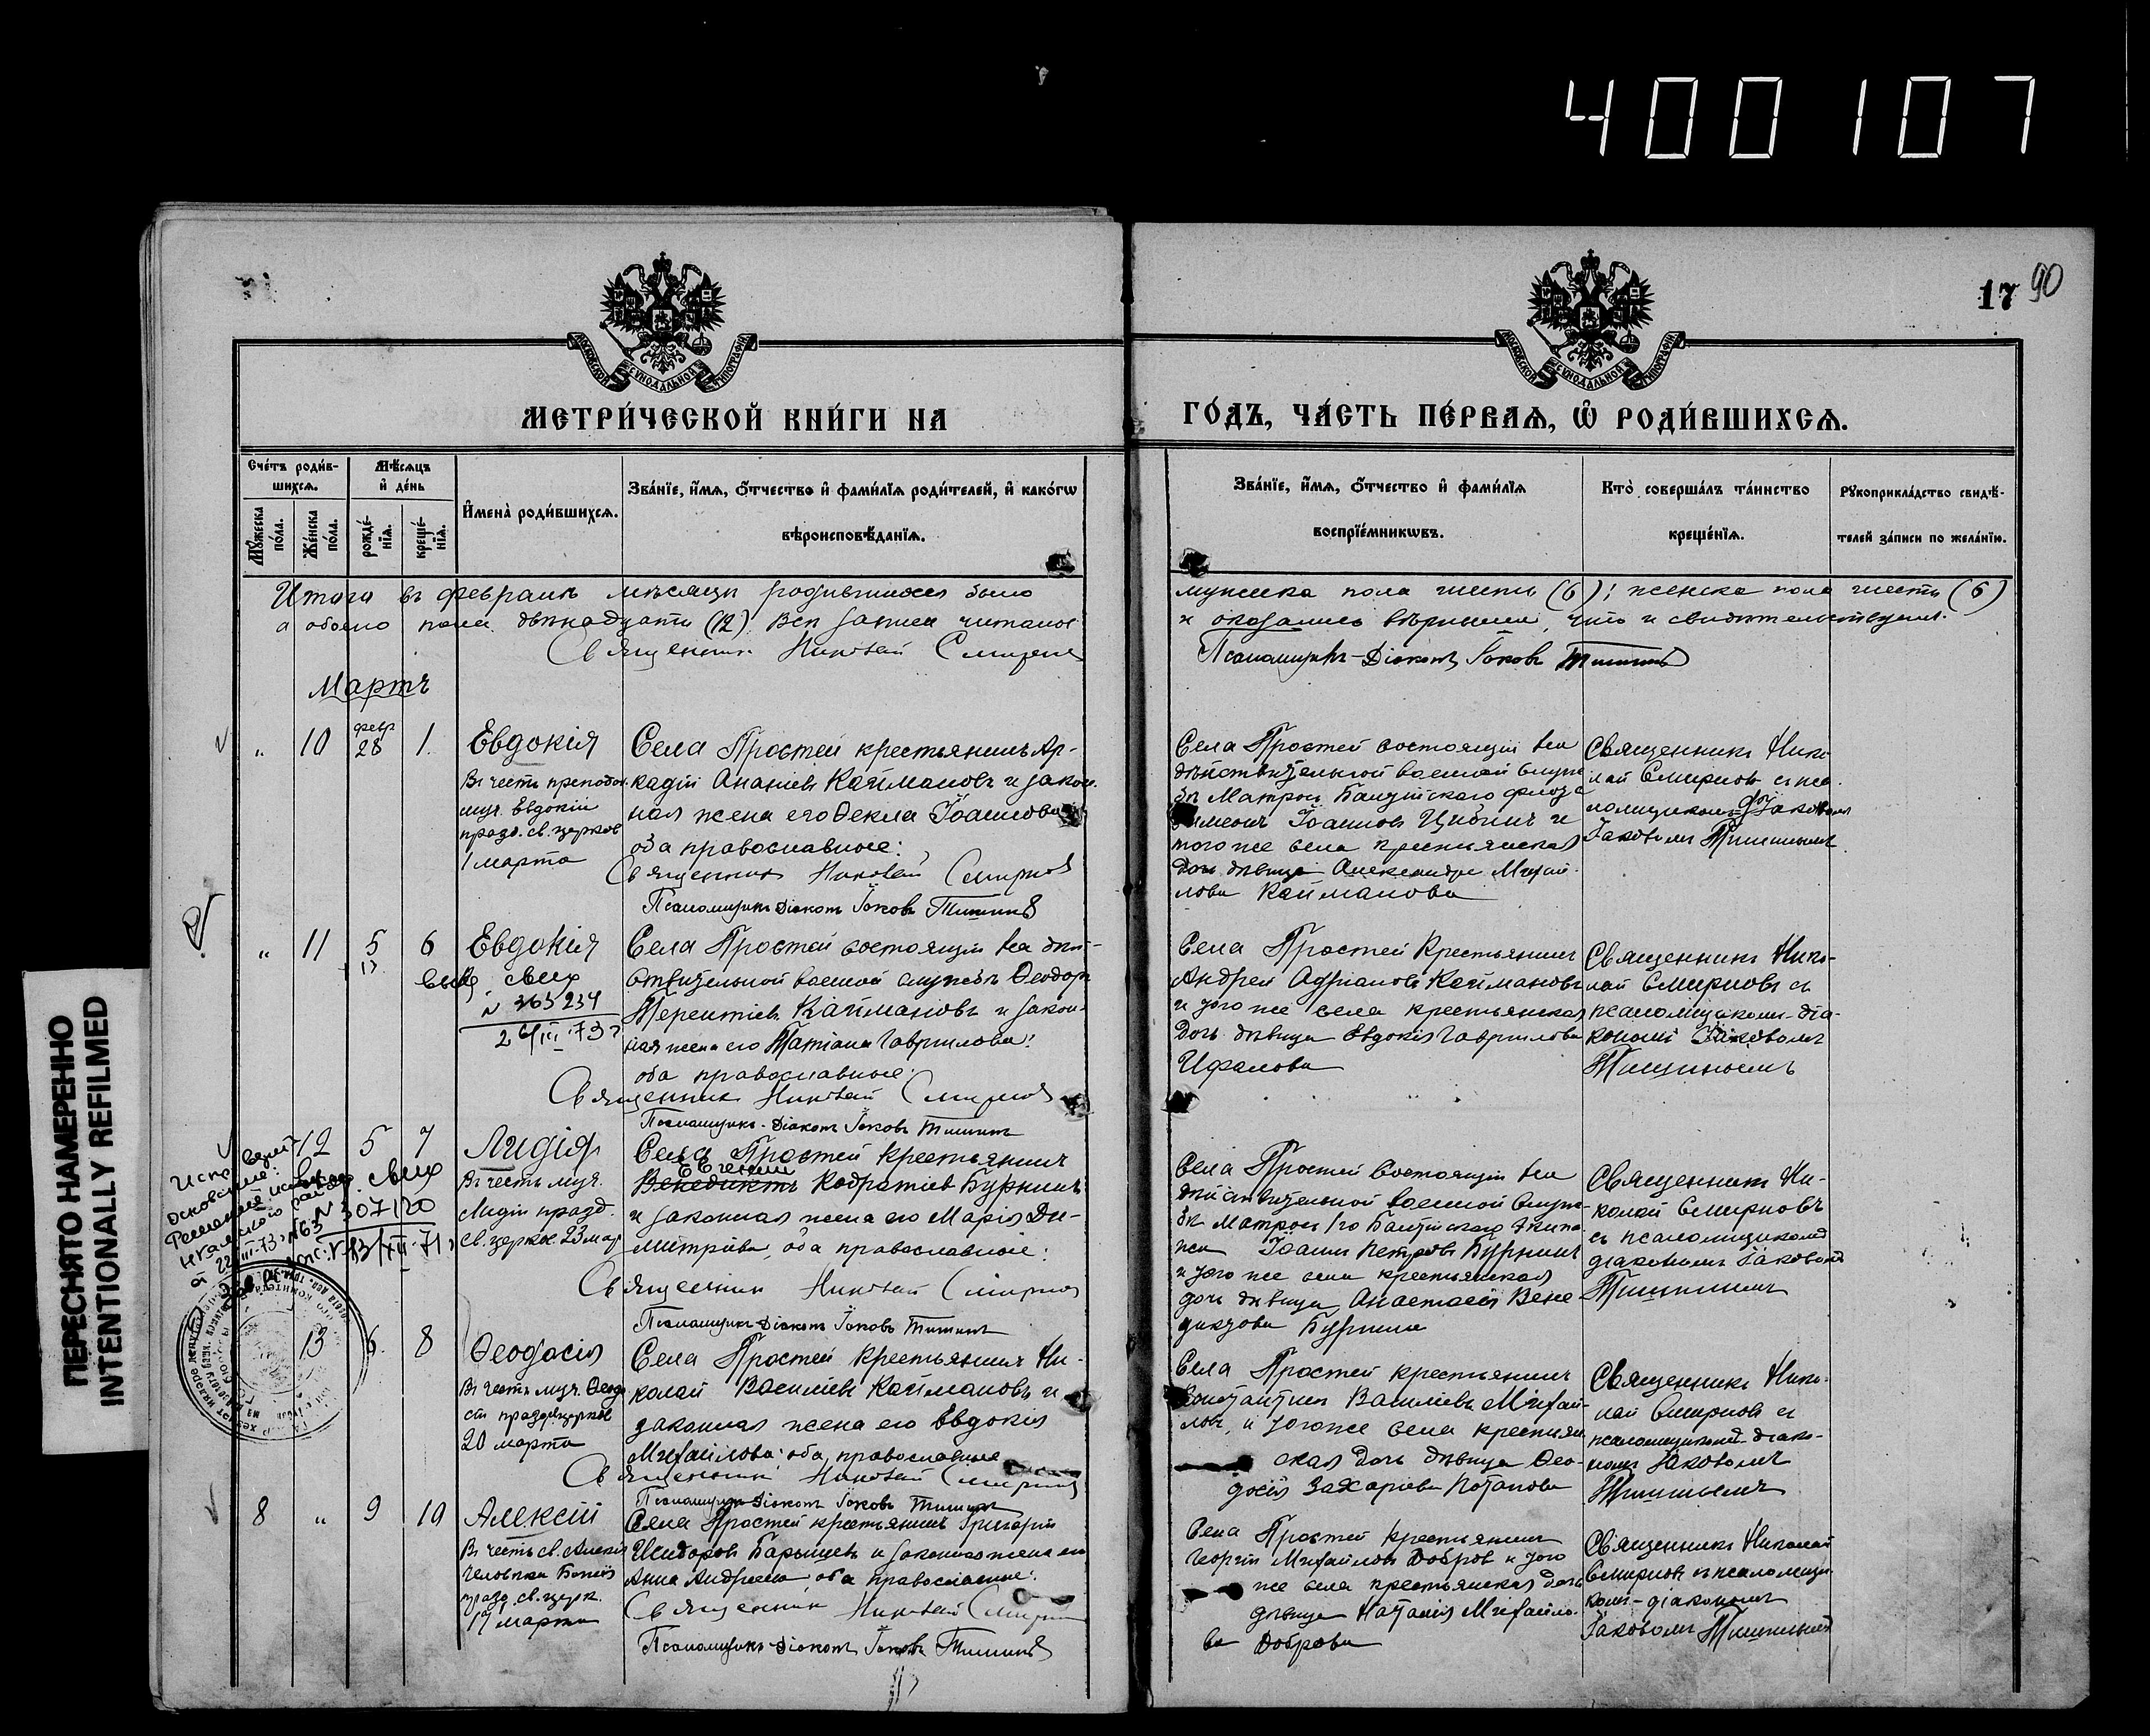 400107
17 90
МОСКОВСКОЙ СѴНОДАЛЬНОЙ ТИПОГРАФІИ
МОСКОВСКОЙ СѴНОДАЛЬНОЙ ТИПОГРАФІИ
МЕТРИ́ЧЕСКОЙ КНИ́ГИ НА
ГО́ДЪ, ЧА́СТЬ ПЕ́РВАѦ, Ѡ҆ РОДИ́ВШИХСѦ.
Сче́тъ роди́в-
шихсѧ.
Мꙋ́жеска по́ла.
Же́нска по́ла.
Мѣ́сѧцъ
и҆ де́нь
рожде́-нїѧ.
креще́-нїѧ.
И҆мена̀ роди́вшихсѧ.
Зва́нїе, и҆́мѧ, ѻ҆́тчество и҆ фами́лїѧ роди́телей, и҆ како́гѡ
вѣроисповѣ́данїѧ.
Зва́нїе, и҆́мѧ, ѻ҆́тчество и҆ фами́лїѧ
воспрїе́мникѡвъ.
Кто̀ соверша́лъ та́инство
креще́нїѧ.
Рꙋкоприкла́дство свидѣ́-
телей за́писи по жела́нїю.
Итого въ февралѣ мѣсяцѣ родившихся было
мужеска пола шесть (6); женска пола шесть (6)
а обоего пола двѣнадцать (12). Всѣ записи читаны
и оказались вѣрными, что и свидѣтельствуемъ.
Священникъ Николай Смирновъ
Псаломщикъ-Діаконъ Іаковъ Тишинъ
Мартъ
„ 10 февр 28 1. Евдокія
Въ честь преподоб.
муч. Евдокіи
празд. св. церков
1 марта
Села Простей крестьянинъ Ар-
кадій Ананіевъ Каймановъ и закон-
ная жена его Ѳекла Іоаннова
оба православные:
Священникъ Николай Смирновъ
Псаломщикъ Діаконъ Іаковъ Тишинъ
Села Простей состоящій на
дѣйствительной военной служ
бѣ Матросъ Балтійскаго флота
Іоанновъ и
того же села крестьянская
дочь дѣвица Александра Михай-
лова Кайманова
Священникъ Нико-
лай Смирновъ съ пса-
ломщикомъ
Іаковомъ Тишинымъ.
„ 11 5 6 Евдокія
выд. свид
N 363234
26/III 73 г
Села Простей состоящій на дѣй-
ствительной военной службѣ Ѳеодоръ
Терентіевъ Каймановъ и закон-
ная жена его Татіана Гаврилова:
оба православные:
Священникъ Николай Смирновъ
Псаломщикъ-Діаконъ Іаковъ Тишинъ
Села Простей Крестьянинъ
Андрей Адріановъ Каймановъ
и того же села крестьянская
дочь дѣвица Евдокія Гаврилова
Священникъ Нико-
лай Смирновъ съ
псаломщикомъ-діа-
кономъ Іаковомъ
Тишинымъ
12 5 7 Лидія
Въ честь муч.
Лидіи празд.
св. церков. 23 мар
N 307120
13/XII 71 г
Села Простей Крестьянинъ
Евгеній
Венедиктъ Кодратіев Буркинъ
и законная жена его Марія Ди-
митріева, оба православные:
Священникъ Николай Смирновъ
Псаломщикъ Діаконъ Іаковъ Тишинъ
Села Простей состоящій на
дѣйствительной военной служ-
бѣ матросъ 1го Балтійскаго Экипа-
жа Іоаннъ Петровъ Буркинъ
и того же села крестьянская
дочь дѣвица Анастасія Вене-
диктова Буркина
Священникъ Ни-
колай Смирновъ
съ псаломщикомъ
діакономъ Іаковомъ
Тишинымъ
13 6. 8 Ѳеодосія
Въ честь муч. Ѳеодо
сіи празд. церков
20 марта
Села Простей Крестьянинъ Ни-
колай Василіевъ Каймановъ и
законная жена его Евдокія
Михайлова: оба православные
Священникъ Николай Смирновъ
Псаломщикъ Діаконъ Іаковъ Тишинъ
Села Простей крестьянинъ
Константинъ Василіевъ Михай-
ловъ, и того же села крестьян
ская дочь дѣвица Ѳео-
досія Захаріева Потапова
Священникъ Нико-
лай Смирновъ съ
псаломщикомъ-діако-
номъ Іаковомъ
Тишинымъ
8 „ 9 10 Алексій
Въ честь св. Алексія
человѣка Божія
празд. св. церк.
17 марта
Села Простей крестьянинъ Григорій
Исидоровъ Барышевъ и законная жена его
Анна Андреева оба православные:
Священникъ Николай Смирновъ
Псаломщикъ-Діаконъ Іаковъ Тишинъ
Села Простей Крестьянинъ
Георгій Михайловъ Добровъ и того
же села крестьянская дочь
дѣвица Наталія Михайло-
ва Доброва
Священникъ Николай
Смирновъ съ псаломщи-
комъ-діакономъ
Іаковомъ Тишинымъ
ПЕРЕСНЯТО НАМЕРЕННО
INTENTIONALLY REFILMED